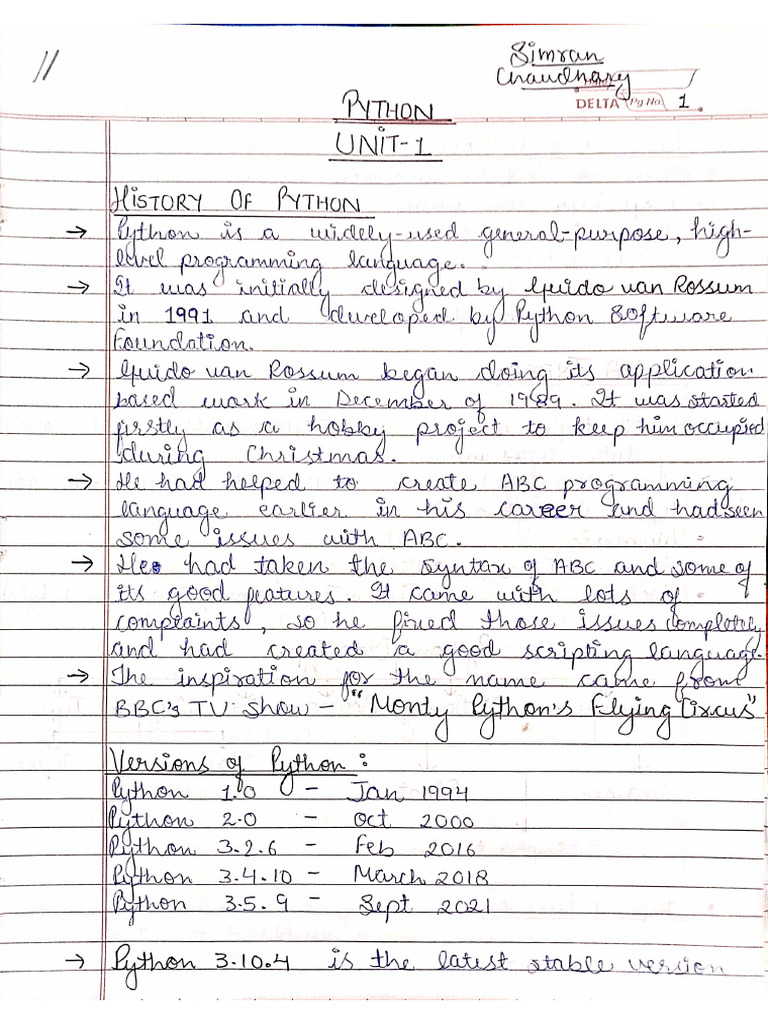 11
Simran
Chaudhary
DELTA Pg No. 1
PYTHON
UNIT-1
HISTORY OF PYTHON
→ Python is a widely-used general-purpose, high-
level programming language.
→ It was initially designed by Guido van Rossum
in 1991 and developed by Python Software
Foundation.
→ Guido van Rossum began doing its application
based work in December of 1989. It was started
firstly as a hobby project to keep him occupied
during Christmas.
→ He had helped to create ABC programming
language earlier in his career and had seen
some issues with ABC.
→ He had taken the syntax of ABC and some of
its good features. It came with lots of
complaints, so he fixed those issues completely
and had created a good scripting language.
→ The inspiration for the name came from
BBC's TV Show - "Monty Python's Flying Circus"
Versions of Python :
Python 1.0 - Jan 1994
Python 2.0 - Oct 2000
Python 3.2.6 - Feb 2016
Python 3.4.10 - March 2018
Python 3.5.9 - Sept 2021
→ Python 3.10.4 is the latest stable version